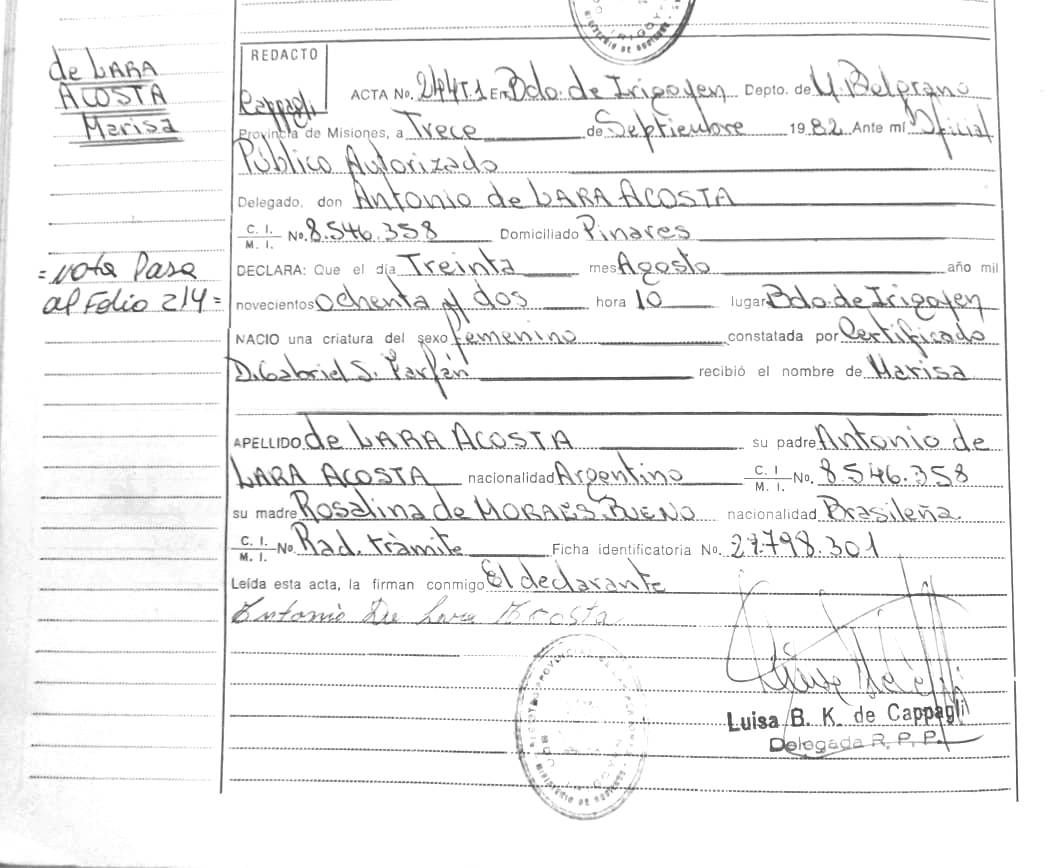 de LARA
ACOSTA
Marisa
= Nota Pasa
al Folio 214 =
REDACTO
Cappagli
ACTA No. 244T1 En Bdo. de Irigoyen Depto. de M. Belgrano
Provincia de Misiones, a Trece de Septiembre 1982 Ante mí Oficial
Público Autorizado
Delegado, don Antonio de LARA ACOSTA
C. I. / M. I. No. 8.546.358 Domiciliado Pinares
DECLARA: Que el día Treinta mes Agosto año mil
novecientos Ochenta y dos hora 10 lugar Bdo. de Irigoyen
NACIO una criatura del sexo femenino constatada por Certificado
D. Gabriel S. Farfán recibió el nombre de Marisa
APELLIDO de LARA ACOSTA su padre Antonio de
LARA ACOSTA nacionalidad Argentino C. I / M. I. No. 8.546.358
su madre Rosalina de MORAES BUENO nacionalidad Brasileña
C. I. / M. I. No. Rad. tràmite Ficha identificatoria No. 29.798.301
Leída esta acta, la firman conmigo El declarante
Antonio De Lara Acosta
Luisa B. K. de Cappagli
Delegada R. P. P.